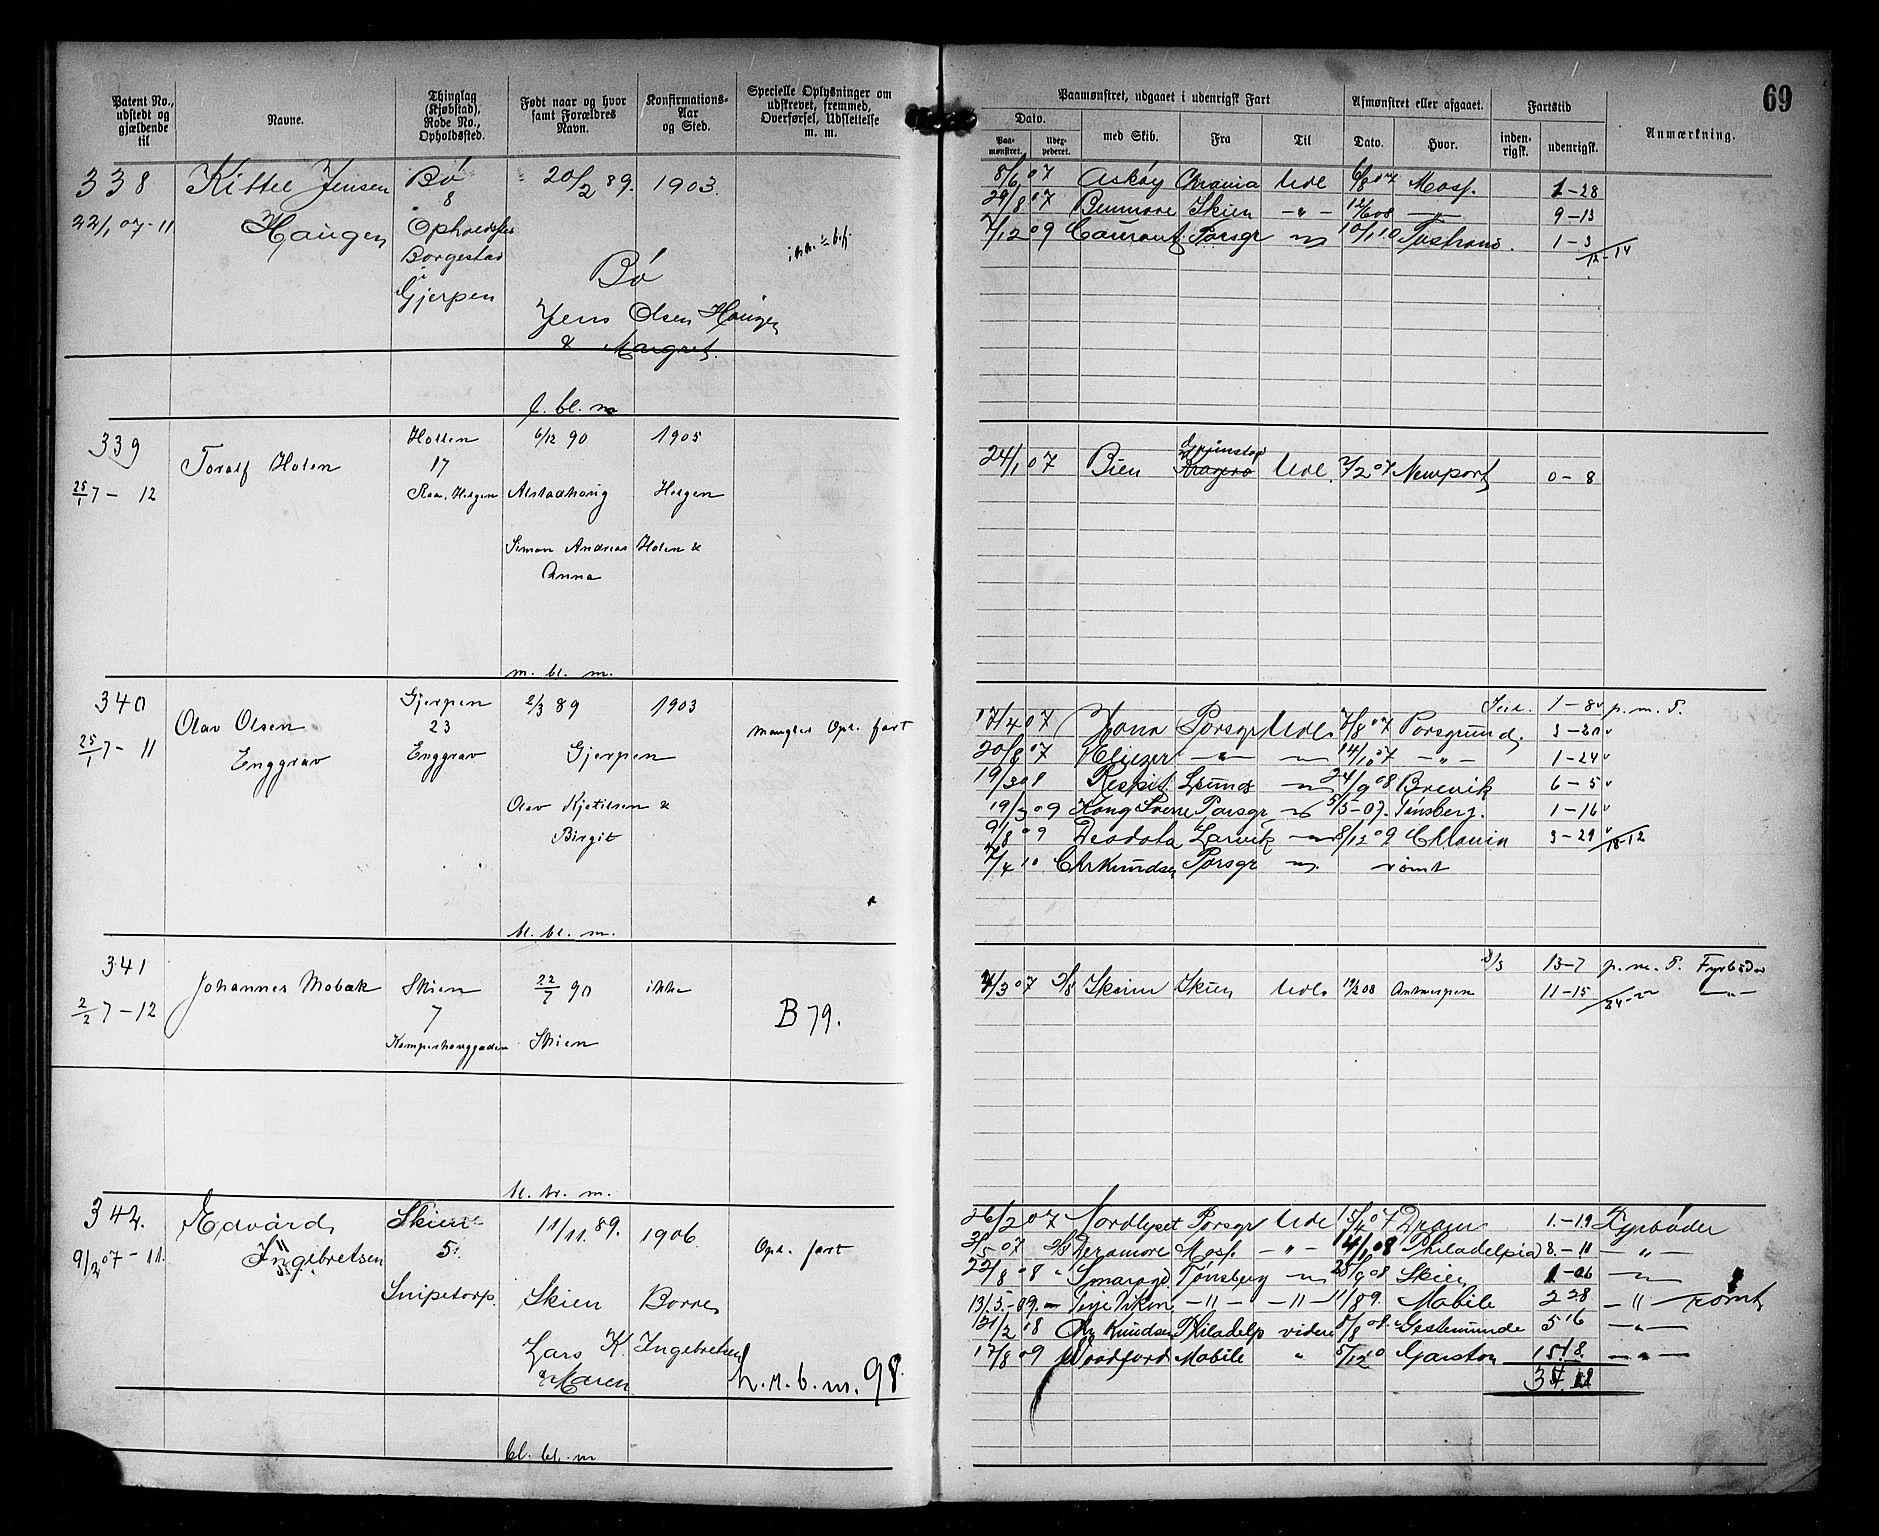 69
Patent No., udstedt og gjældende til
Navne.
Thinglag (Kjøbstad), Rode No., Opholdssted.
Født naar og hvor samt Forældres Navn.
Konfirmations-Aar og Sted.
Specielle Oplysninger om udskrevet, fremmed, Overførsel, Udslettelse m. m.
Paamønstret, udgaaet i udenrigsk Fart
Afmønstret eller afgaaet.
Fartstid
Anmærkning.
Dato.
Paa-mønstret.
Udex-pederet.
med Skib.
Fra
Til
Dato.
Hvor.
inden-rigsk.
udenrigsk.
338 Kittel Jensen Bø 20/2 89. 1903.
22/1 07-11 Haugen 8
Borgestad
i
Gjerpen
Bø
Jens Olsen Haugen
& Margret.
f. bl. m
8/6 07 Askøy Chrania Udl 6/8 07 Moss. 1-28
29/8 07 Benmore Skien -"- 12/6 08 -"- 9-13
7/12 09 Porsgr 10/1 10 1-3
12-14
339 Toralf Holen Hollen 6/12 90 1905
17
25/1 7-12 Alstadhaug Helgen
Simon Andreas Holen &
Anna
m. bl. m.
24/1 07 Bien Udl. 7/2 07 Newport 0-8
340 Olav Olsen Gjerpen 2/3 89 1903
23
25/1 7-11 Enggrav Enggrav Gjerpen mangler Oph. fart
Olav Kjetilsen &
Birgit
bl. bl. m.
1-8 p. m. T.
17/4 07 Porsgr Udl. 7/8 07 Porsgrund
20/8 07 Eliezer -"- 14/10 07 -"- 1-24
19/3 08 Respit 24/9 08 Brevik 6-5
19/3 09 Kong Sverre Porsgr 5/5-07. Tønsberg. 1-16
9/8 09 Deodata Larvik 8/12 09 Chrania 3-29
18-12
7/4 10 Chr Knudsen Porsgr rømt
341 Johannes Mobæk Skien 22/7 90 ikke
2/2 7-12 7
Skien
B 79.
bl. br. m.
13-7 p. m. T. Fyrbøder
4/3 07 Skien Udl. 19/2 08 Antwerpen 11-15 -"-
342. Edvard Skien 11/11 89. 1906
9/2 07-11. Ingebretsen 5. Oph. fart
Snipetorp. Skien Borre
Lars K. Ingebretsen
& Maren
h. r. b. m. 98.
bl. bl. m
26/2 07 Nordlyset Porsgr Udl Dram 1.-19 Fyrbøder
31/5 07 Deramore Moss. -"- 14/1 08 Philadelpia 8.-11 -"-
22/8 08 Smaragd Tønsberg 25/9 08 Skien
13/5.-09. Terje Viken -"- -"- 11/8 09. Mobile 2 28 -"- rømt
21/2 08 Chr Knudsen Philadelp videre 8/8 08. Gestemunde 5 16 -"-
17/8 09 Woodford Mobile " 5/12 10 Garston 15.18. -"-